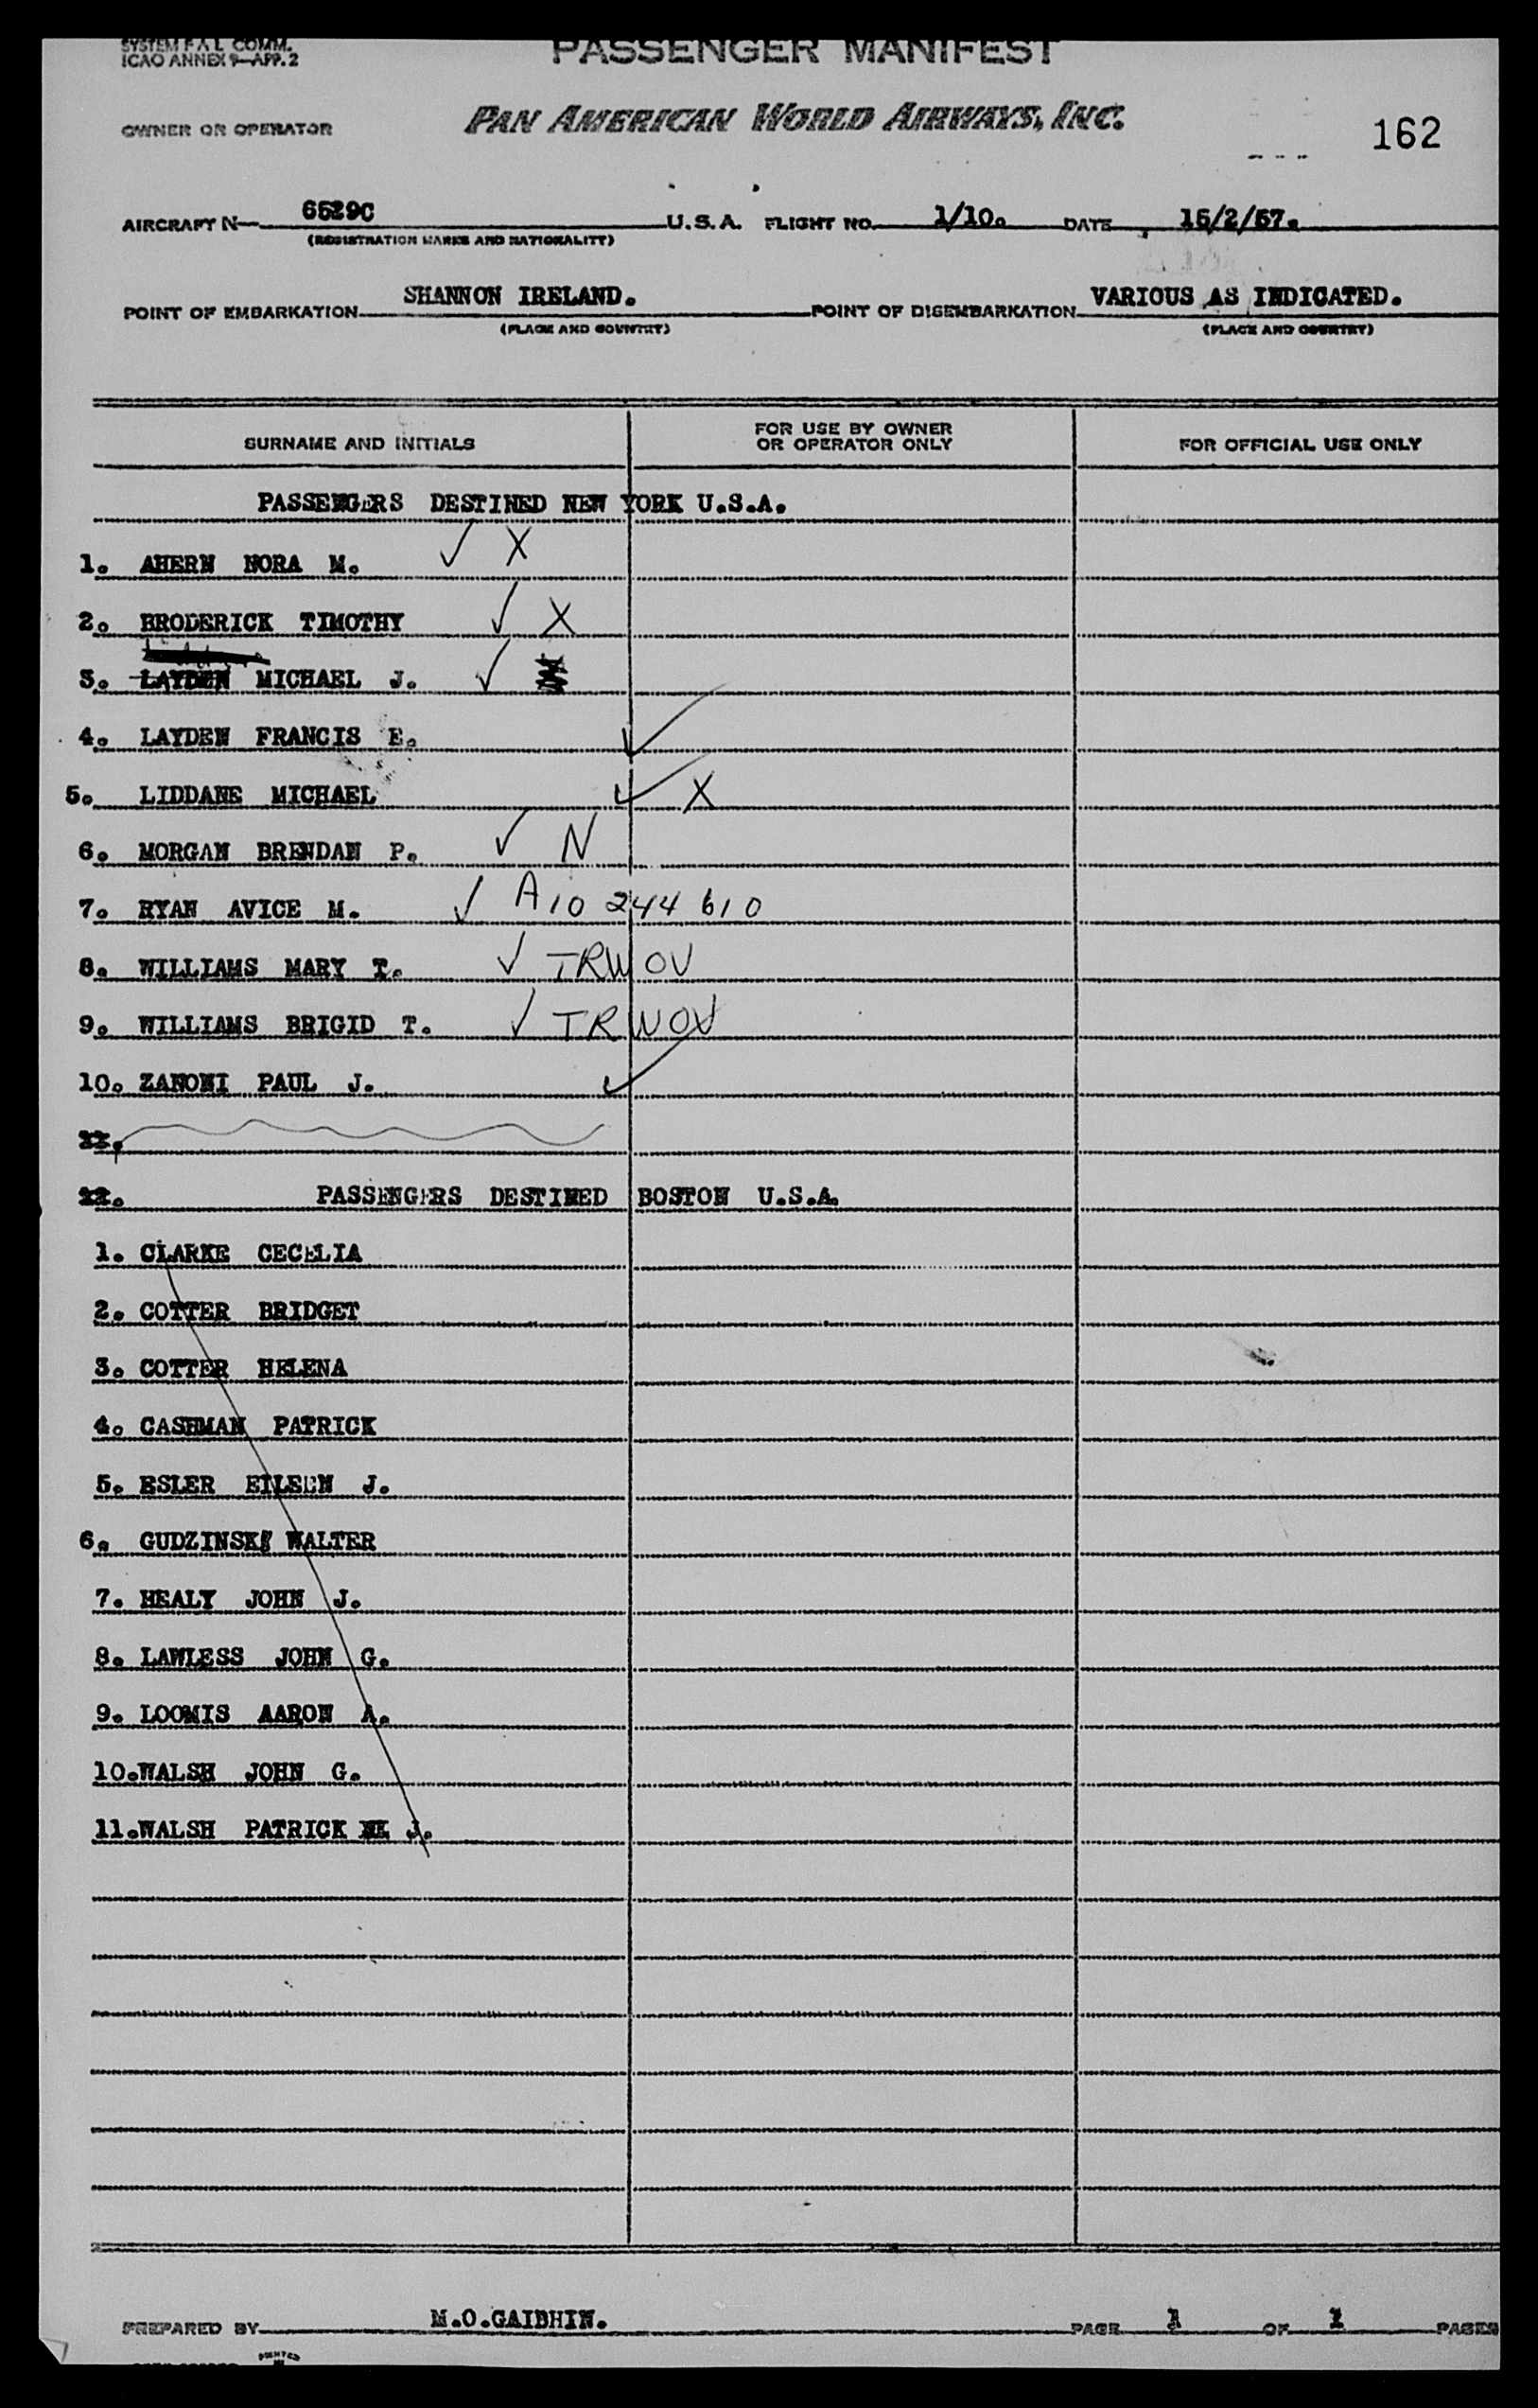 SYSTEM F A L COMM.
ICAO ANNEX 9—APP. 2
PASSENGER MANIFEST
OWNER OR OPERATOR PAN AMERICAN WORLD AIRWAYS, INC. 162
AIRCRAFT N— 6529C U.S.A. FLIGHT NO. 1/10. DATE 15/2/57.
(REGISTRATION MARKS AND NATIONALITY)
POINT OF EMBARKATION SHANNON IRELAND. POINT OF DISEMBARKATION VARIOUS AS INDICATED.
(PLACE AND COUNTRY) (PLACE AND COUNTRY)
SURNAME AND INITIALS FOR USE BY OWNER OR OPERATOR ONLY FOR OFFICIAL USE ONLY
PASSENGERS DESTINED NEW YORK U.S.A.
1. AHERN NORA M. ✓ X
2. BRODERICK TIMOTHY ✓ X
3. LAYDEN MICHAEL J. ✓
4. LAYDEN FRANCIS E. ✓
5. LIDDANE MICHAEL ✓ X
6. MORGAN BRENDAN P. ✓ N
7. RYAN AVICE M. ✓ A10 244 610
8. WILLIAMS MARY T. ✓ TRWOV
9. WILLIAMS BRIGID T. ✓ TRWOV
10. ZANONI PAUL J. ✓
PASSENGERS DESTINED BOSTON U.S.A.
1. CLARKE CECELIA
2. COTTER BRIDGET
3. COTTER HELENA
4. CASHMAN PATRICK
5. ESLER EILEEN J.
6. GUDZINSKI WALTER
7. HEALY JOHN J.
8. LAWLESS JOHN G.
9. LOOMIS AARON A.
10. WALSH JOHN G.
11. WALSH PATRICK J.
PREPARED BY M.O.GAIBHIN. PAGE 1 OF 1 PAGES
PRINTED